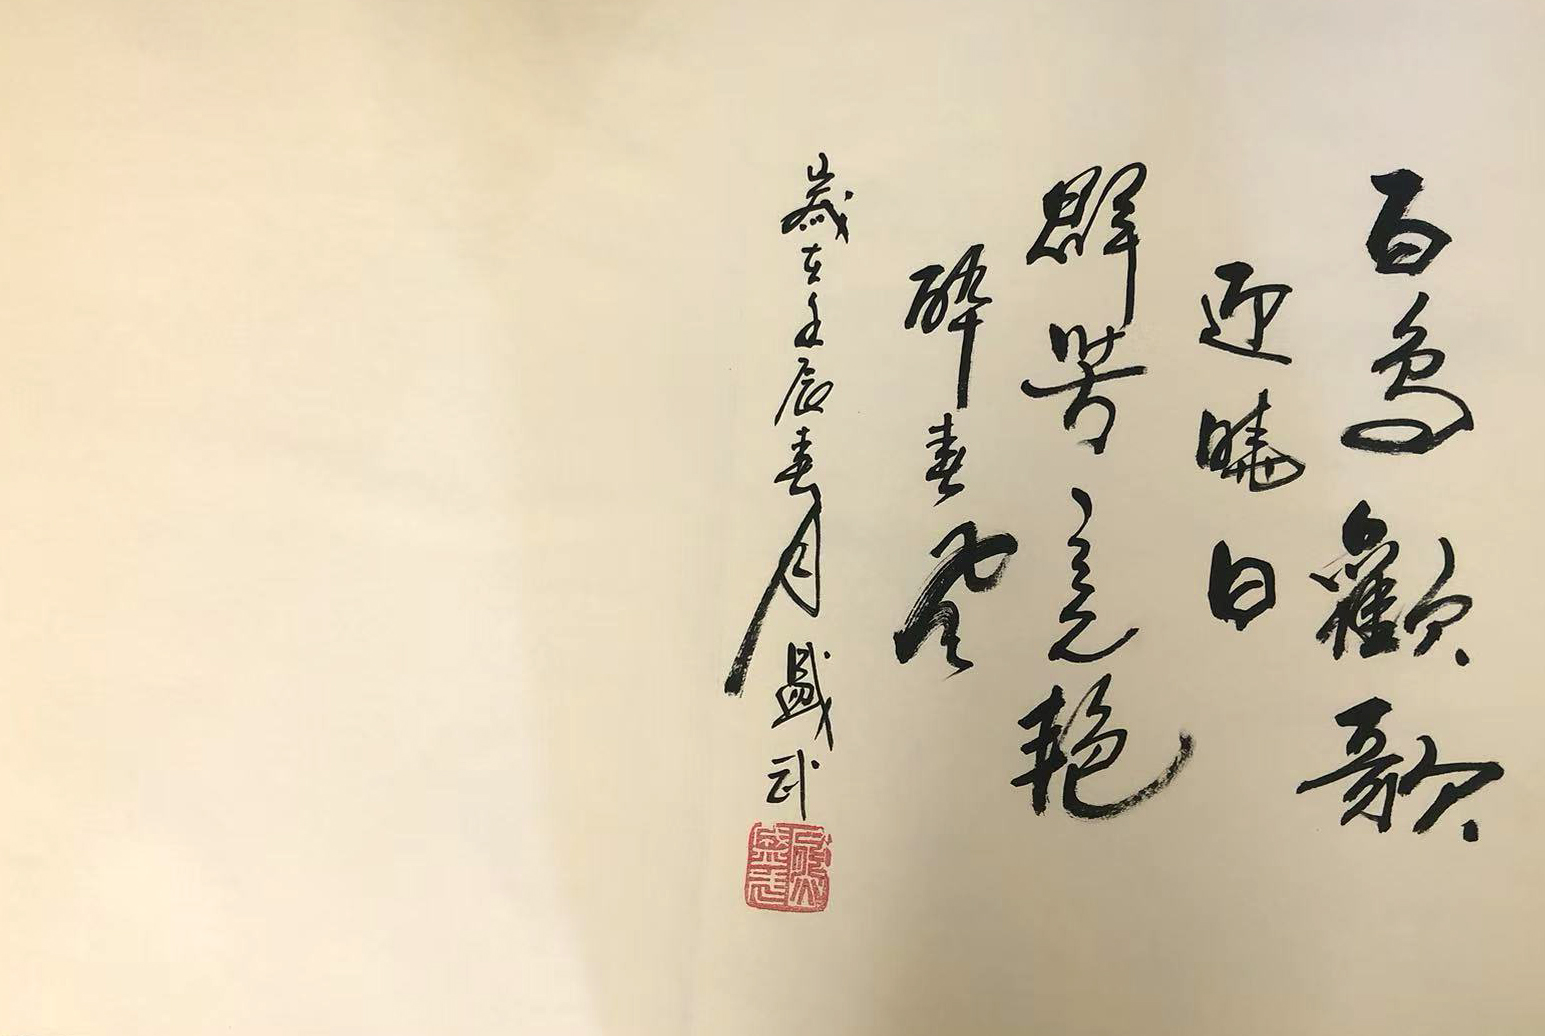 百鳥歡歌
迎曉日
群芳竞艳
醉春風
歲在壬辰春月盛武